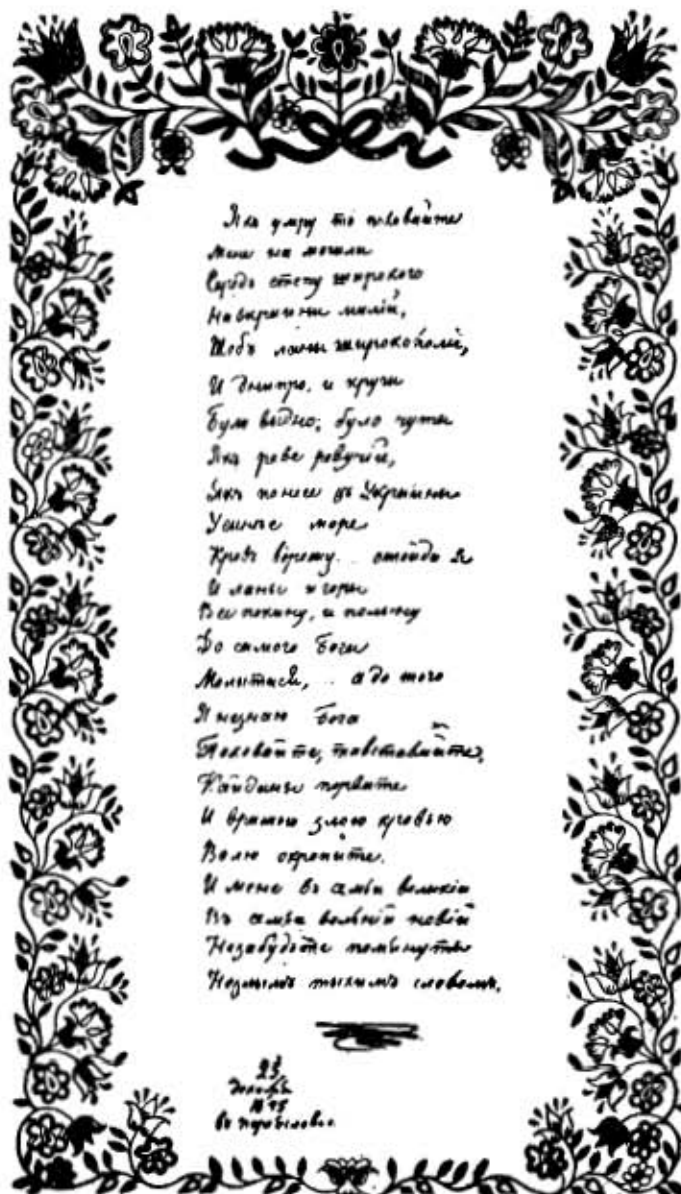 Якъ умру то поховайте
Мене на могили
Середъ степу широкого
На вкраини милій,
Щобъ ланы широкополи,
И Днипро, и кручи
Було выдно; було чуты
Якъ реве ревучій,
Якъ понесе зъ Украины
У синье море
Кровъ ворожу.. отойди я
И ланы и горы
Все покину, и полыну
До самого Бога
Молытися,.. а до того
Я незнаю Бога
Поховайте, та вставайте,
Кайданы порвите
И вражою злою кровью
Волю окропите.
И мене въ семьи великій
Въ семьи вольній новій
Незабудьте помянуты
Незлымъ тыхымъ словомъ.
25
декабря
1845